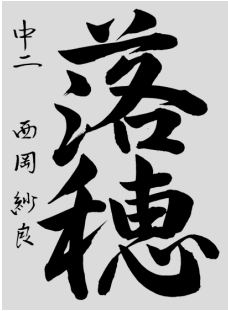 落穂
中二 西岡 紗良